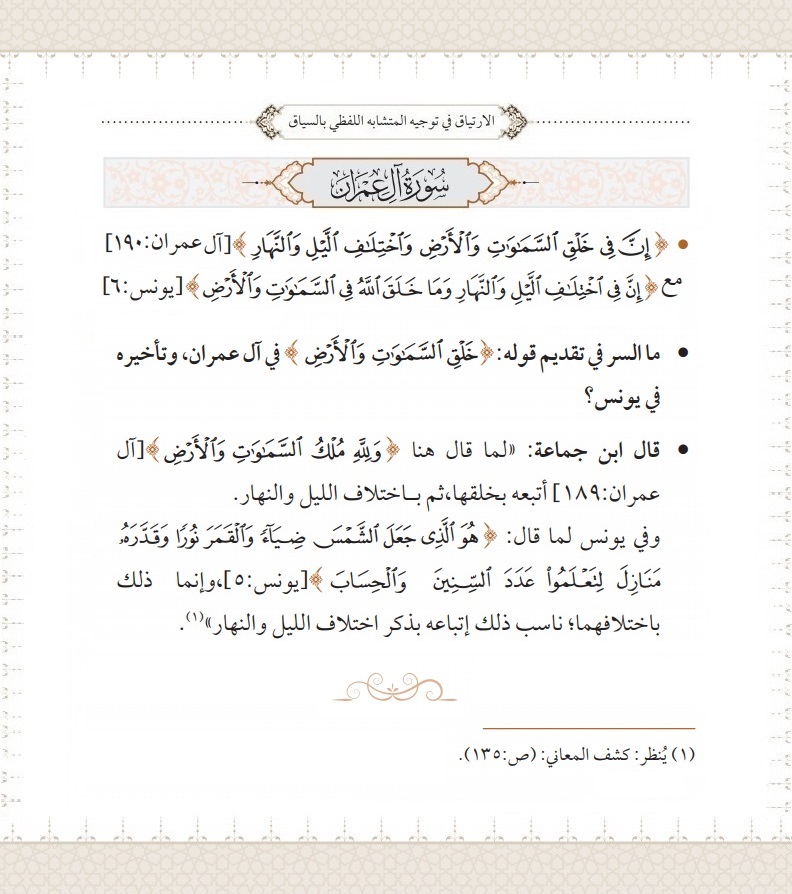 الارتياق في توجيه المتشابه اللفظي بالسياق
سُورَةُ آلِ عِمْرَان
• ﴿ إِنَّ فِي خَلْقِ السَّمَٰوَٰتِ وَالْأَرْضِ وَاخْتِلَٰفِ الَّيْلِ وَالنَّهَارِ ﴾[آل عمران:١٩٠]
مع ﴿ إِنَّ فِي اخْتِلَٰفِ الَّيْلِ وَالنَّهَارِ وَمَا خَلَقَ اللَّهُ فِي السَّمَٰوَٰتِ وَالْأَرْضِ ﴾[يونس:٦]
• ما السر في تقديم قوله: ﴿ خَلْقِ السَّمَٰوَٰتِ وَالْأَرْضِ ﴾ في آل عمران، وتأخيره
في يونس؟
• قال ابن جماعة: «لما قال هنا ﴿ وَلِلَّهِ مُلْكُ السَّمَٰوَٰتِ وَالْأَرْضِ ﴾[آل
عمران:١٨٩] أتبعه بخلقها،ثم بـاختلاف الليل والنهار.
وفي يونس لما قال: ﴿ هُوَ الَّذِي جَعَلَ الشَّمْسَ ضِيَآءً وَالْقَمَرَ نُورًا وَقَدَّرَهُۥ
مَنَازِلَ لِتَعْلَمُوا۟ عَدَدَ السِّنِينَ وَالْحِسَابَ ﴾[يونس:٥]،وإنما ذلك
باختلافهما؛ ناسب ذلك إتباعه بذكر اختلاف الليل والنهار»(١).
(١) يُنظر: كشف المعاني: (ص:١٣٥).